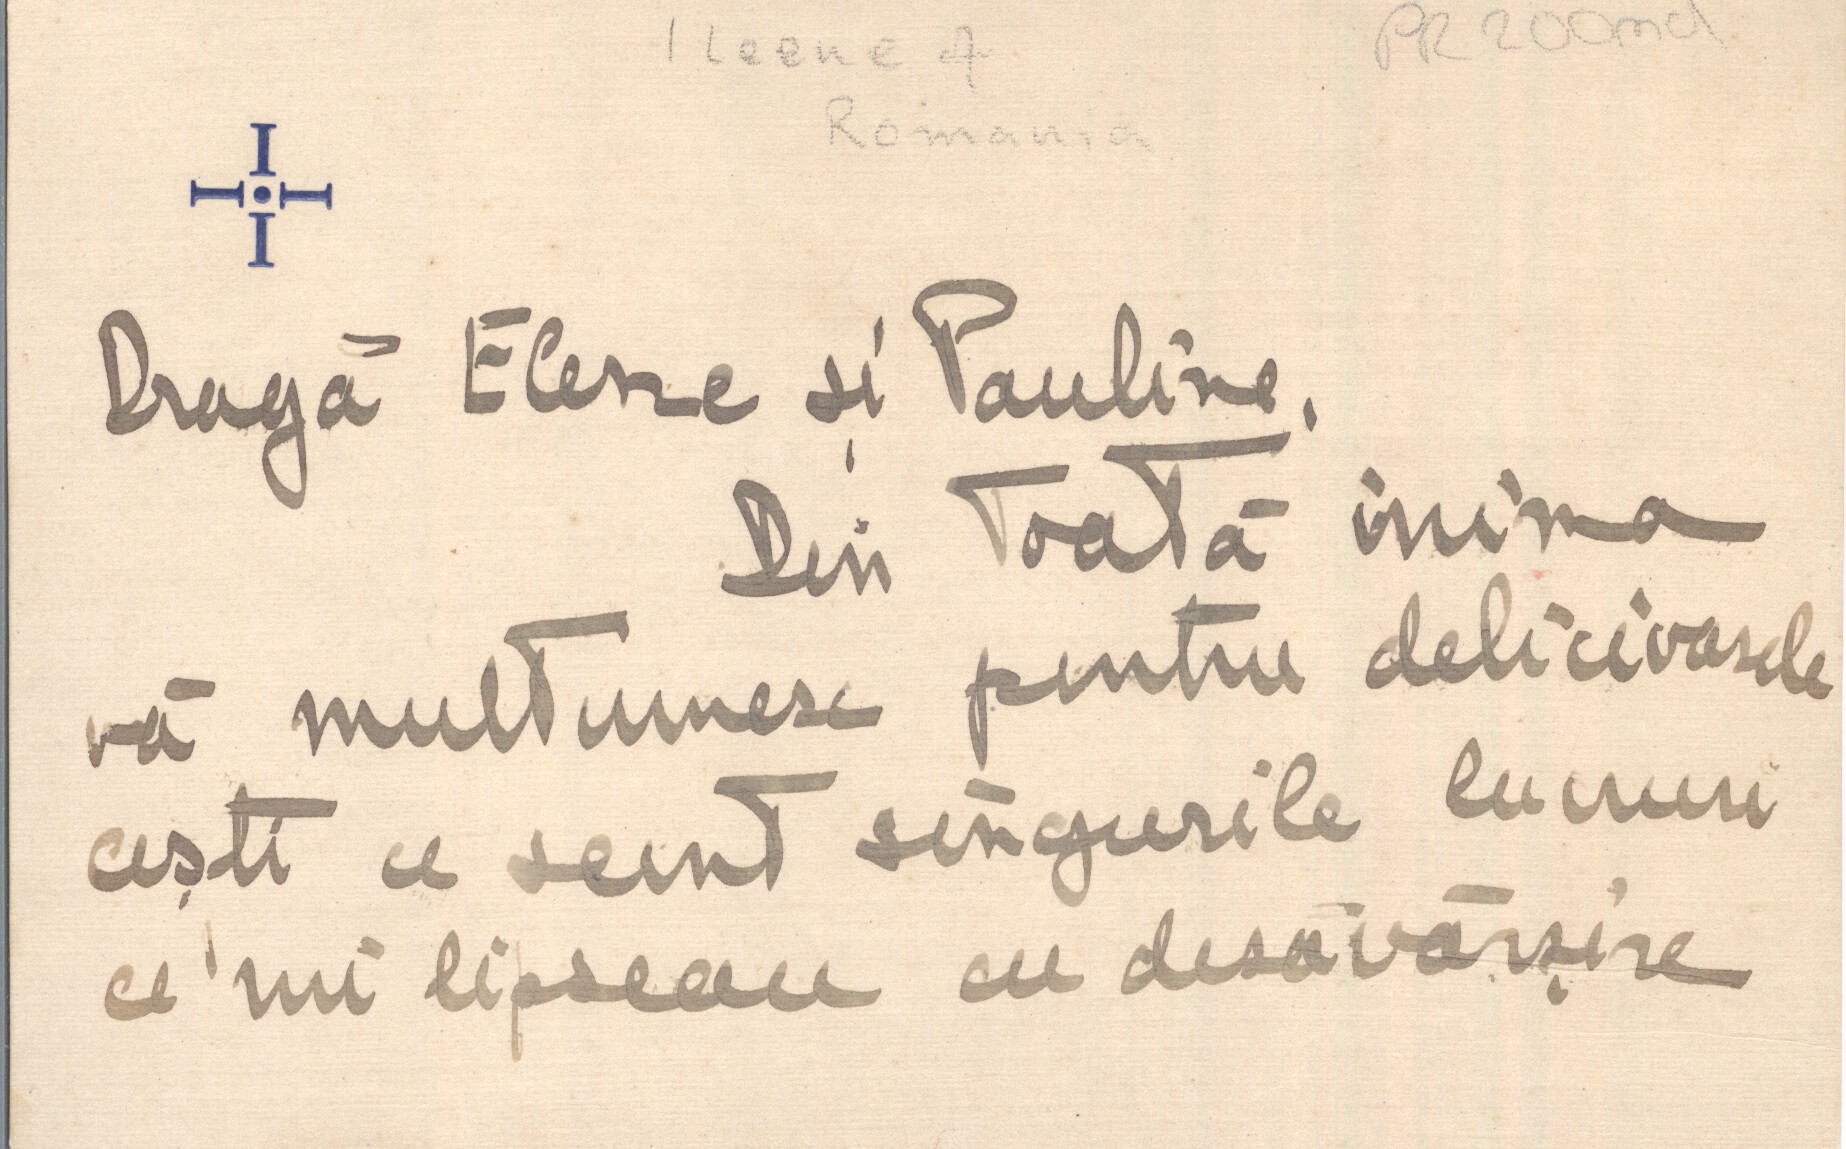 Ileene of
Romania
PR200md
Dragă Elene și Pauline,
Din toată inima
vă multumesc pentru delicioasele
cești ce sunt singurile lucruri
ce 'mi lipseau cu desăvârșire